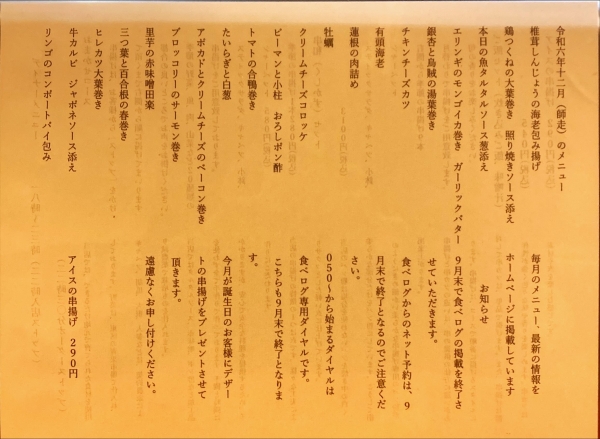 令和六年十二月（師走）のメニュー
椎茸しんじょうの海老包み揚げ
鶏つくねの大葉巻き　照り焼きソース添え
本日の魚タルタルソース葱添え
エリンギのモンゴイカ巻き　ガーリックバター
銀杏と烏賊の湯葉巻き
チキンチーズカツ
有頭海老
蓮根の肉詰め
牡蠣
クリームチーズコロッケ
ピーマンと小柱　おろしポン酢
トマトの合鴨巻き
たいらぎと白葱
アボカドとクリームチーズのベーコン巻き
ブロッコリーのサーモン巻き
里芋の赤味噌田楽
三つ葉と百合根の春巻き
ヒレカツ大葉巻き
牛カルビ　ジャポネソース添え
リンゴのコンポートパイ包み
毎月のメニュー、最新の情報を
ホームページに掲載しています
お知らせ
９月末で食べログの掲載を終了さ
せていただきます。
食べログからのネット予約は、９
月末で終了となるのでご注意くだ
さい。
０５０～から始まるダイヤルは
食べログ専用ダイヤルです。
こちらも９月末で終了となりま
す。
今月が誕生日のお客様にデザー
トの串揚げをプレゼントさせて
頂きます。
遠慮なくお申し付けください。
アイスの串揚げ　２９０円